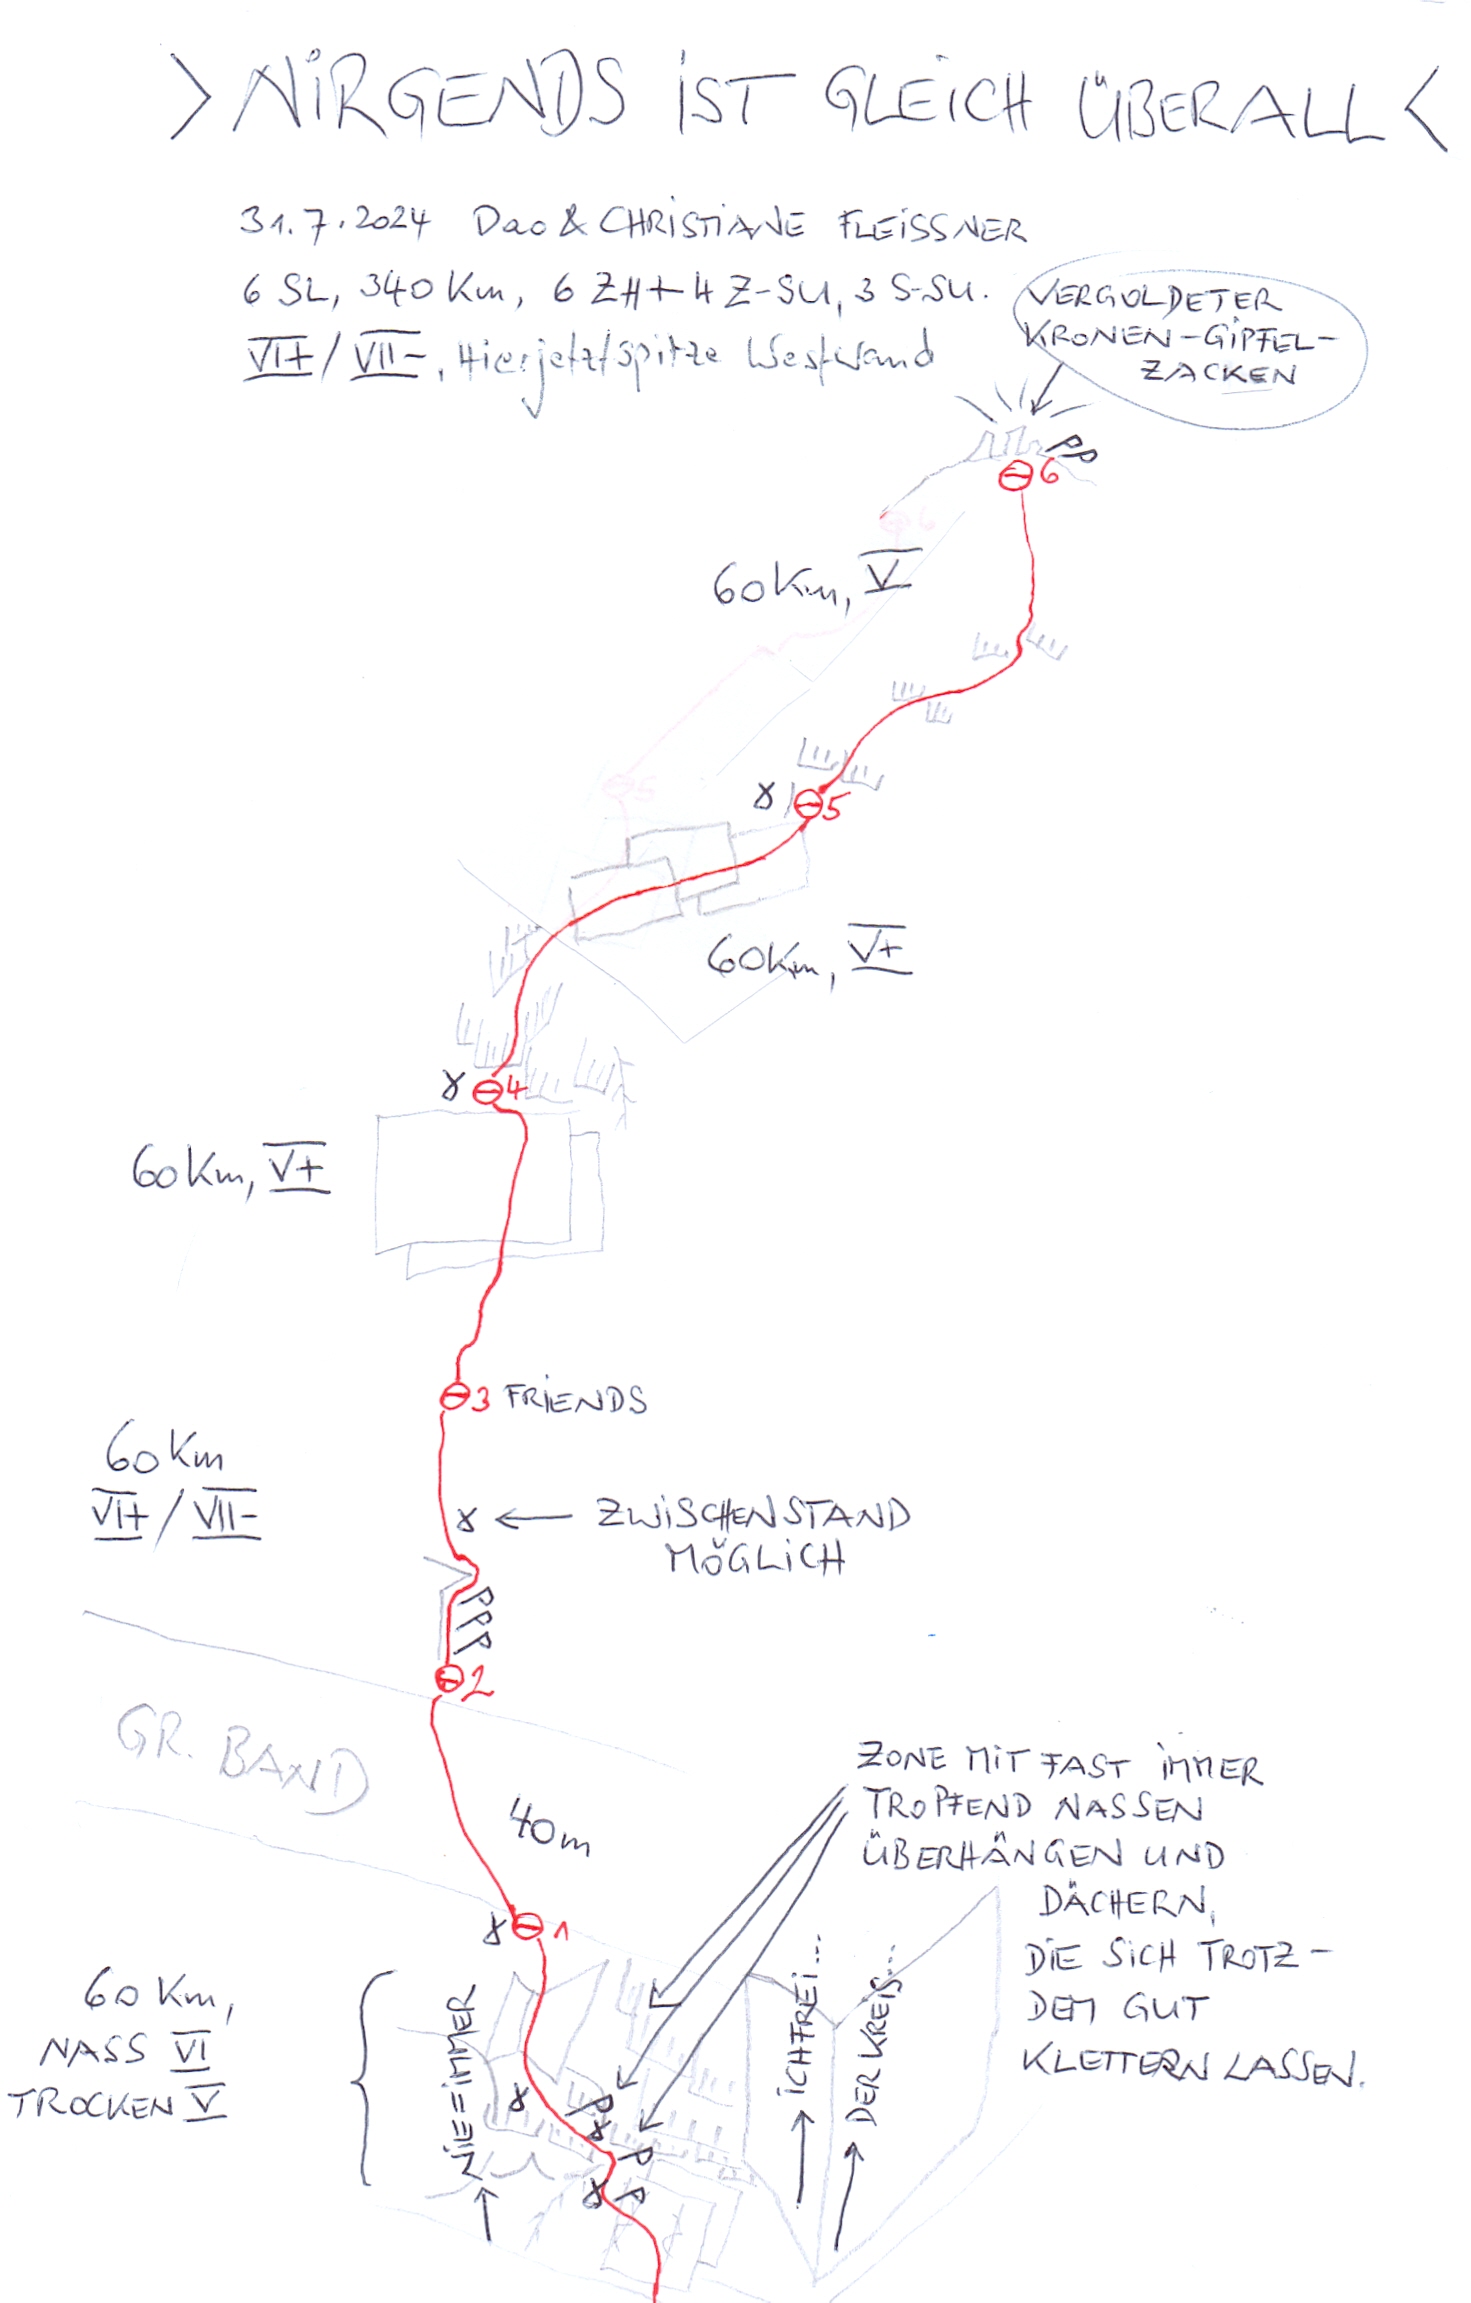 > NIRGENDS IST GLEICH ÜBERALL <
31.7.2024 Dao & CHRISTIANE FLEISSNER
6 SL, 340 Km, 6 ZH + 4 Z-SU, 3 S-SU.
VI+ / VII-, Hierjetztspitze Westwand
VERGOLDETER
KRONEN-GIPFEL-
ZACKEN
6
6
60 Km, V
5
5
60 Km, V+
4
60 Km, V+
3 FRIENDS
60 Km
VI+ / VII-
ZWISCHENSTAND
MÖGLICH
2
GR. BAND
40 m
1
ZONE MIT FAST IMMER
TROPFEND NASSEN
ÜBERHÄNGEN UND
DÄCHERN,
DIE SICH TROTZ-
DEM GUT
KLETTERN LASSEN.
60 Km,
NASS VI
TROCKEN V
NIE=IMMER
ICHFREI...
DER KREIS...